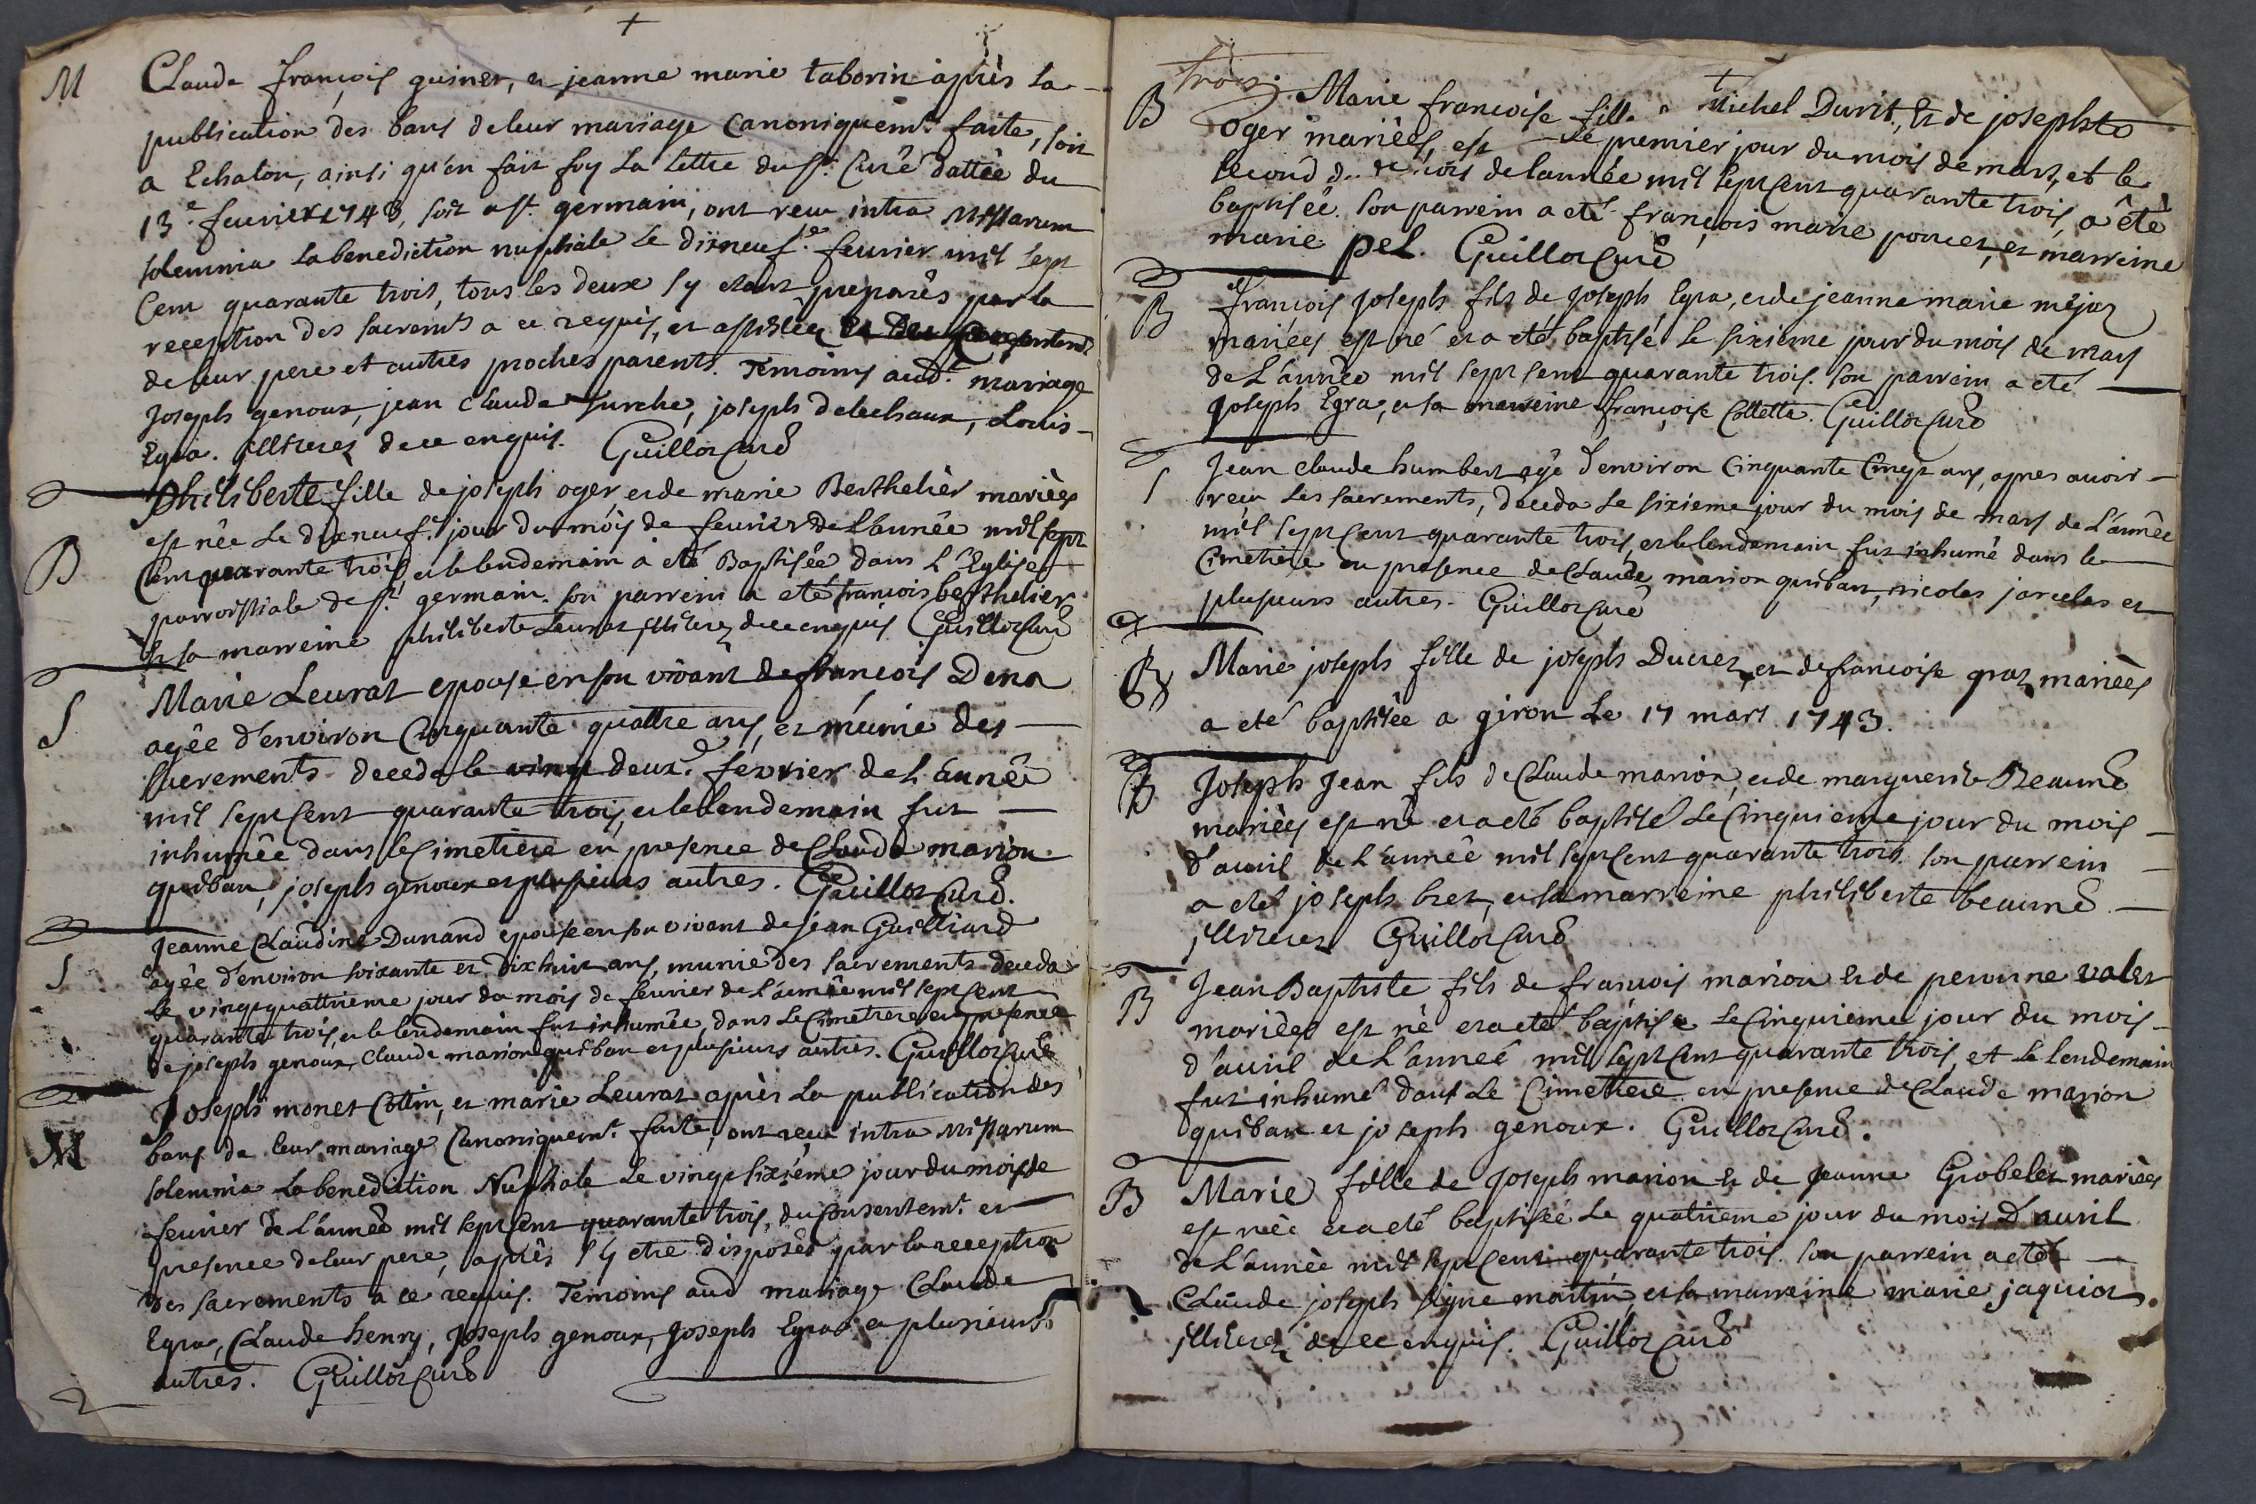 M Claude françois guinet, et jeanne marie taborin après la
publication des bans de leur mariage Canoniquemt. faite, soit
a Echalon, ainsi qu'en fait foy la lettre du sr. Curé dattée du
13e. feurier 1743, soit a st. germain, ont reçu intra Missarum
solemnia la benediction nuptiale Le dixneuf.e feurier mil sept
Cent quarante trois, tous les deux s'y etant preparés par la
reception des sacremts a ce requis, et assistéez
de leur pere et autres proches parents. Temoins audt. mariage
Joseph genoux, jean Claude Surche, joseph delechaux, Louis
Egra. illiterez de ce enquis. Guillot Curé
B Philiberte fille de joseph oger et de marie Berthelièr mariées
est née Le dixneuf.e jour du mois de feurier de L'année mil sept
Cent quarante trois, et le lendemain a eté Baptisée dans L'Eglise
parroissiale de st. germain. son parrein a eté francois berthelier
Et sa marreine philiberte Leurat illiterez de ce enquis Guillot Curé
S Marie Leurat epouse en son vivant de francois Dena
agée d'environ Cinquante quattre ans, et munie des
sacrements deceda le vingt deux.e février de L'année
mil sept Cent quarante trois, et le lendemain fut
inhumée dans le Cimetière en presence de Claude marion
quiban, joseph genoux et plusieurs autres. Guillot Curé.
S Jeanne Claudine Dunand epouse en son vivant de jean Guilliard
agée d'environ soixante et dixhuit ans, munie des sacrements deceda
Le vingtquattrieme jour du mois de feurier de L'année mil sept Cent
quarante trois, et le lendemain fut inhumée, dans Le Cimetiere en presence
de joseph genoux, Claude marion quiban et plusieurs autres. Guillot Curé
M Joseph monet Cottin, et marie Leurat après La publication des
bans de leur mariage Canoniquemt. faite, ont reçu intra Missarum
solemnia La benediction Nuptiale Le vingt sixième jour du mois de
feurier de L'année mil sept Cent quarante trois, du Consentemt. et
presence de leur pere, après s'y etre disposés par la reception
des sacrements a ce requis. Temoins aud mariage Claude
Egra, Claude henry, Joseph genoux, Joseph Egra et plusieurs
autres. Guillot Curé
trois.
B Marie francoise fille Michel Durit, Et de josephte
oger mariées, est Le premier jour du mois de mars, et le
second mois de l'année mil sept Cent quarante trois, a été
baptisée. son parrein a eté françois marie poncet, et marreine
marie pel. Guillot Curé
B François Joseph fils de Joseph Egra, et de jeanne marie méjat
mariées est né et a eté baptisé Le sixieme jour du mois de mars
de L'année mil sept Cent quarante trois. son parrein a eté
Joseph Egra, et sa marreine françoise Collette. Guillot Curé
S Jean Claude humbert agé d'environ Cinquante Cinq ans, apres avoir
reçu Les sacrements, deceda Le sixieme jour du mois de mars de L'année
mil sept Cent quarante trois, et le lendemain fut inhumé dans le
Cimetiere en presence de Claude marion quiban, nicolas jarcelet et
plusieurs autres. Guillot Curé
B Marie joseph fille de joseph Ducret, et de francoise graz mariées
a eté baptisée a giron Le 17 mars 1743.
B Joseph Jean fils de Claude marion, et de marguerite Beaumé
mariées est né et a eté baptisé Le Cinquieme jour du mois
d'auril de L'année mil sept Cent quarante trois son parrein
a eté joseph bret, et sa marreine philiberte beaumé
illiterez Guillot Curé
B Jean Baptiste fils de francois marion Et de peronne valet
mariées est né et a eté baptisé Le Cinquieme jour du mois
d'auril de L'année mil sept Cent quarante trois, et Le lendemain
fut inhumé dans Le Cimetiere en presence de Claude marion
quiban et joseph genoux. Guillot Curé.
B Marie fille de Joseph marion Et de Jeanne Grobelet mariées
est née et a eté baptisée Le quatrieme jour du mois d'auril
de L'année mil sept Cent quarante trois. son parrein a eté
Claude joseph signe martin, et sa marreine marie jaquiot.
illiterez de ce enquis. Guillot Curé